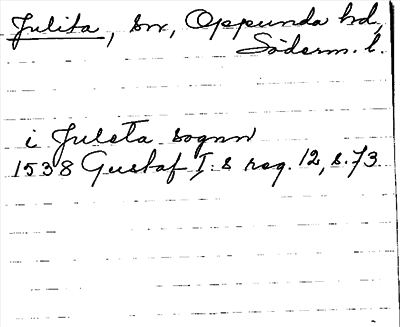 Julita, sn, Oppunda hd,
Söderm. l.
i Juleta sognn
1538 Gustaf I:s reg. 12, s. 73